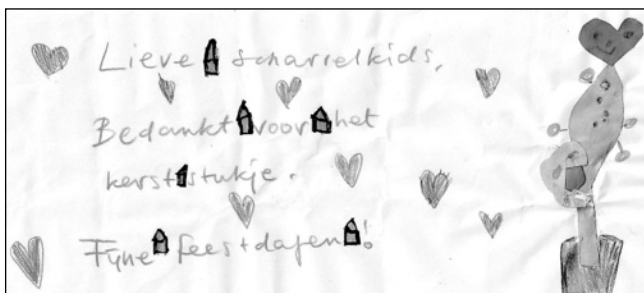 Lieve scharrelkids,
Bedankt voor het
kerststukje.
Fijne feestdagen!